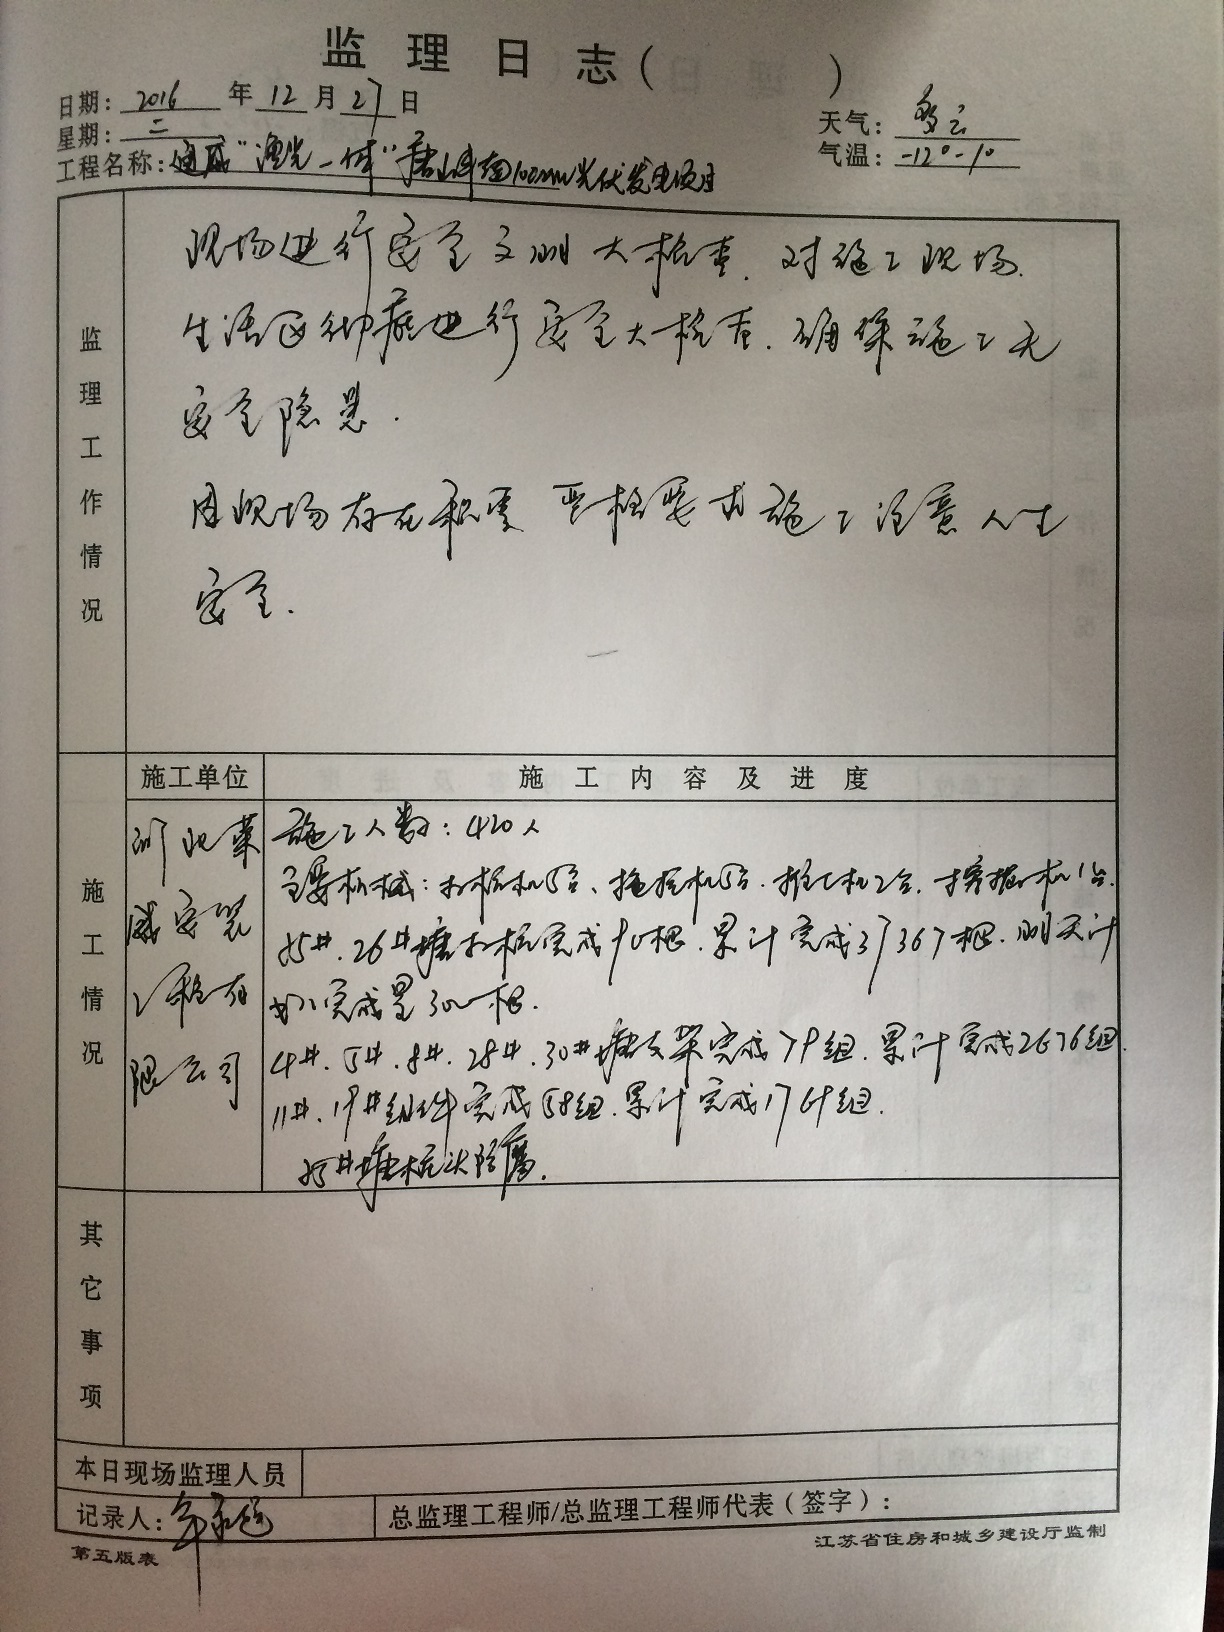 监理日志( )
日期: 2016 年 12 月 27 日
星期: 二
天气: 多云
工程名称: 通威"渔光一体"唐山 100MW光伏发电项目
气温: -12°-1°
监理工作情况
现场进行安全文明大检查. 对施工现场.
生活区 进行安全大检查. 确保施工无
安全隐患.
因现场存在积雪 严格要求施工注意人生
安全.
施工单位
施工内容及进度
施工情况
河北
安装
工程有
限公司
施工人数: 420人
主要机械: 打桩机5台、拖拉机5台. 推土机2台. 挖掘机1台.
25#. 26#塘打桩完成90根. 累计完成37367根. 明天计
划完成量300根.
4#. 5#. 8#. 28#. 30#塘支架完成79组. 累计完成2676组.
11#. 19#组件完成58组. 累计完成1769组.
25#塘桩头防腐.
其它事项
本日现场监理人员
记录人:
总监理工程师/总监理工程师代表(签字):
第五版表
江苏省住房和城乡建设厅监制